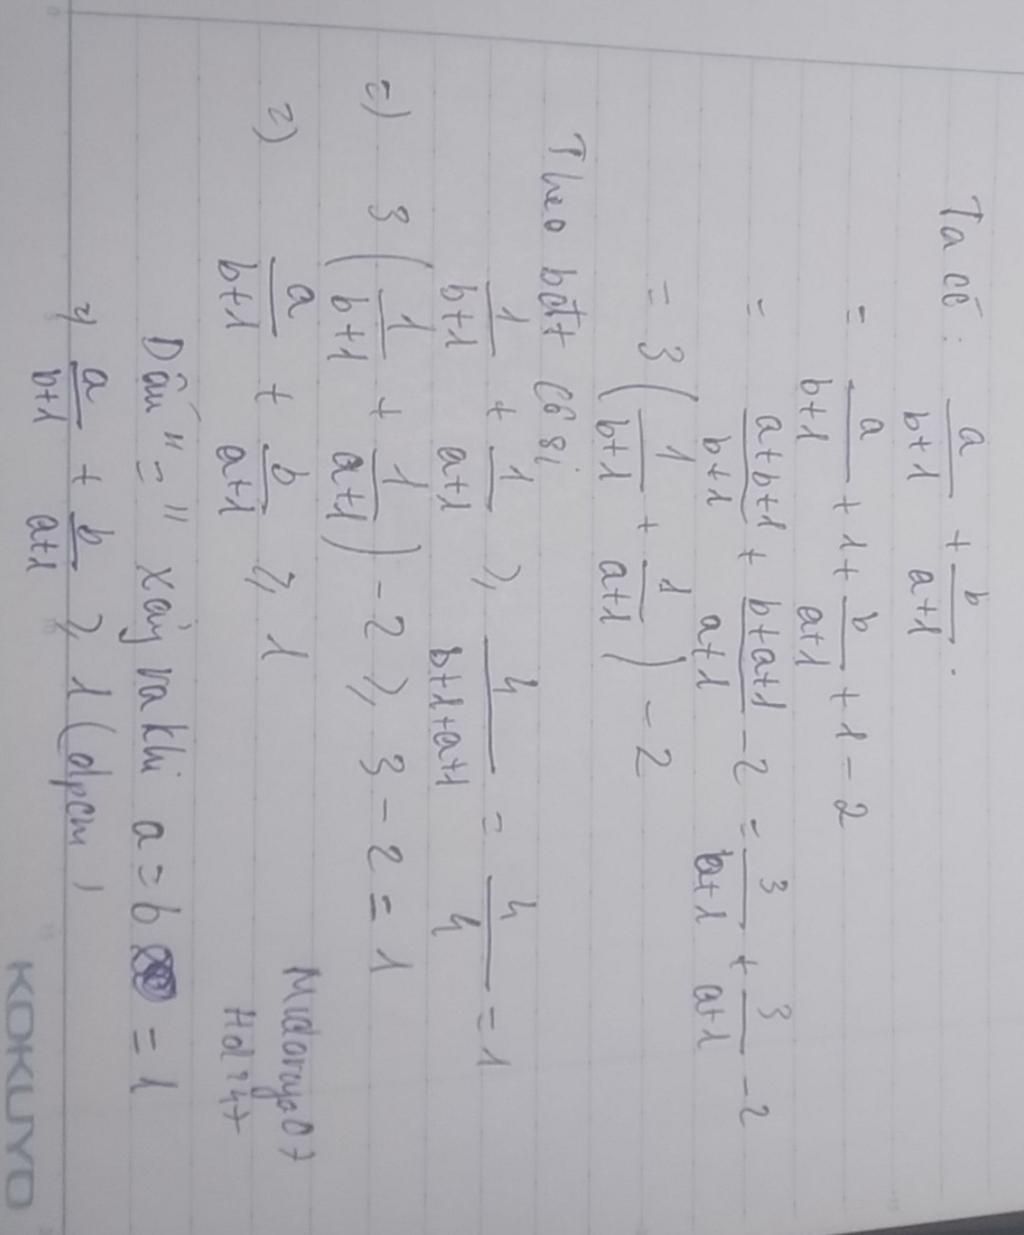 Ta có: a/(b+1) + b/(a+1).
= a/(b+1) + 1 + b/(a+1) + 1 - 2
= (a+b+1)/(b+1) + (b+a+1)/(a+1) - 2 = 3/(b+1) + 3/(a+1) - 2
= 3(1/(b+1) + 1/(a+1)) - 2
Theo bđt Côsi
1/(b+1) + 1/(a+1) ≥ 4/(b+1+a+1) = 4/4 = 1
=) 3(1/(b+1) + 1/(a+1)) - 2 ≥ 3 - 2 = 1
=) a/(b+1) + b/(a+1) ≥ 1
Dấu "=" xảy ra khi a = b = 1
=) a/(b+1) + b/(a+1) ≥ 1 (đpcm)
KOKUYO